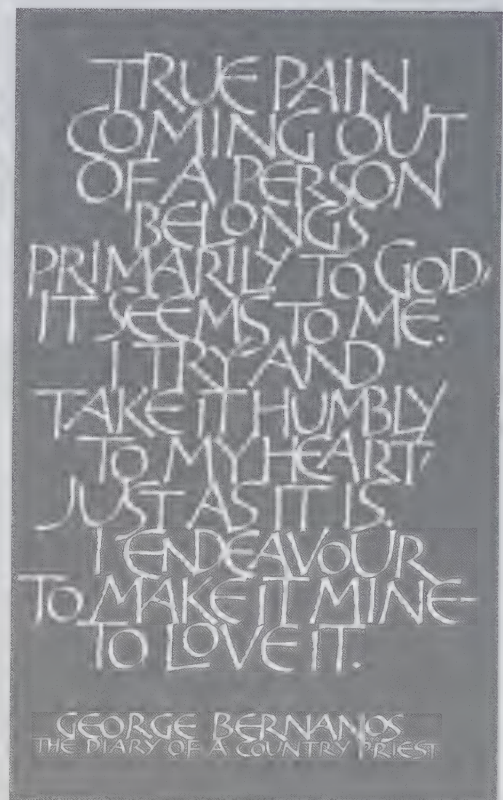 TRUE PAIN
COMING OUT
OF A PERSON
BELONGS
PRIMARILY TO GOD,
IT SEEMS TO ME.
I TRY AND
TAKE IT HUMBLY
TO MY HEART,
JUST AS IT IS.
I ENDEAVOUR
TO MAKE IT MINE-
TO LOVE IT.
GEORGE BERNANOS
THE DIARY OF A COUNTRY PRIEST